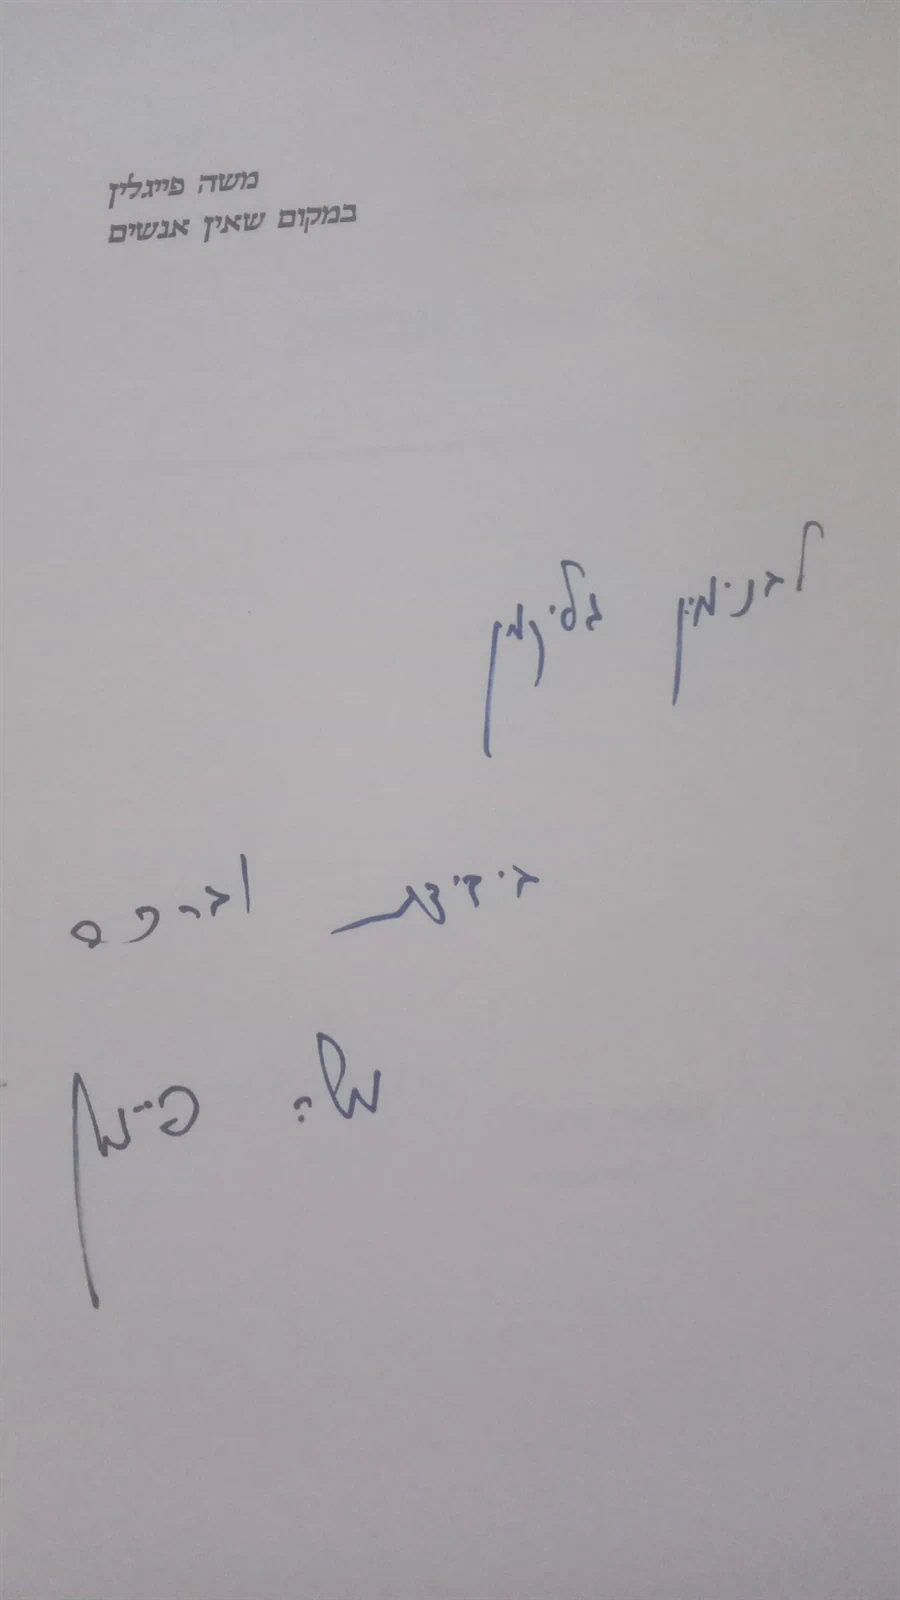 משה פייגלין
במקום שאין אנשים
לבנימין גליקמן
בידידות וברכה
משה פייגלין